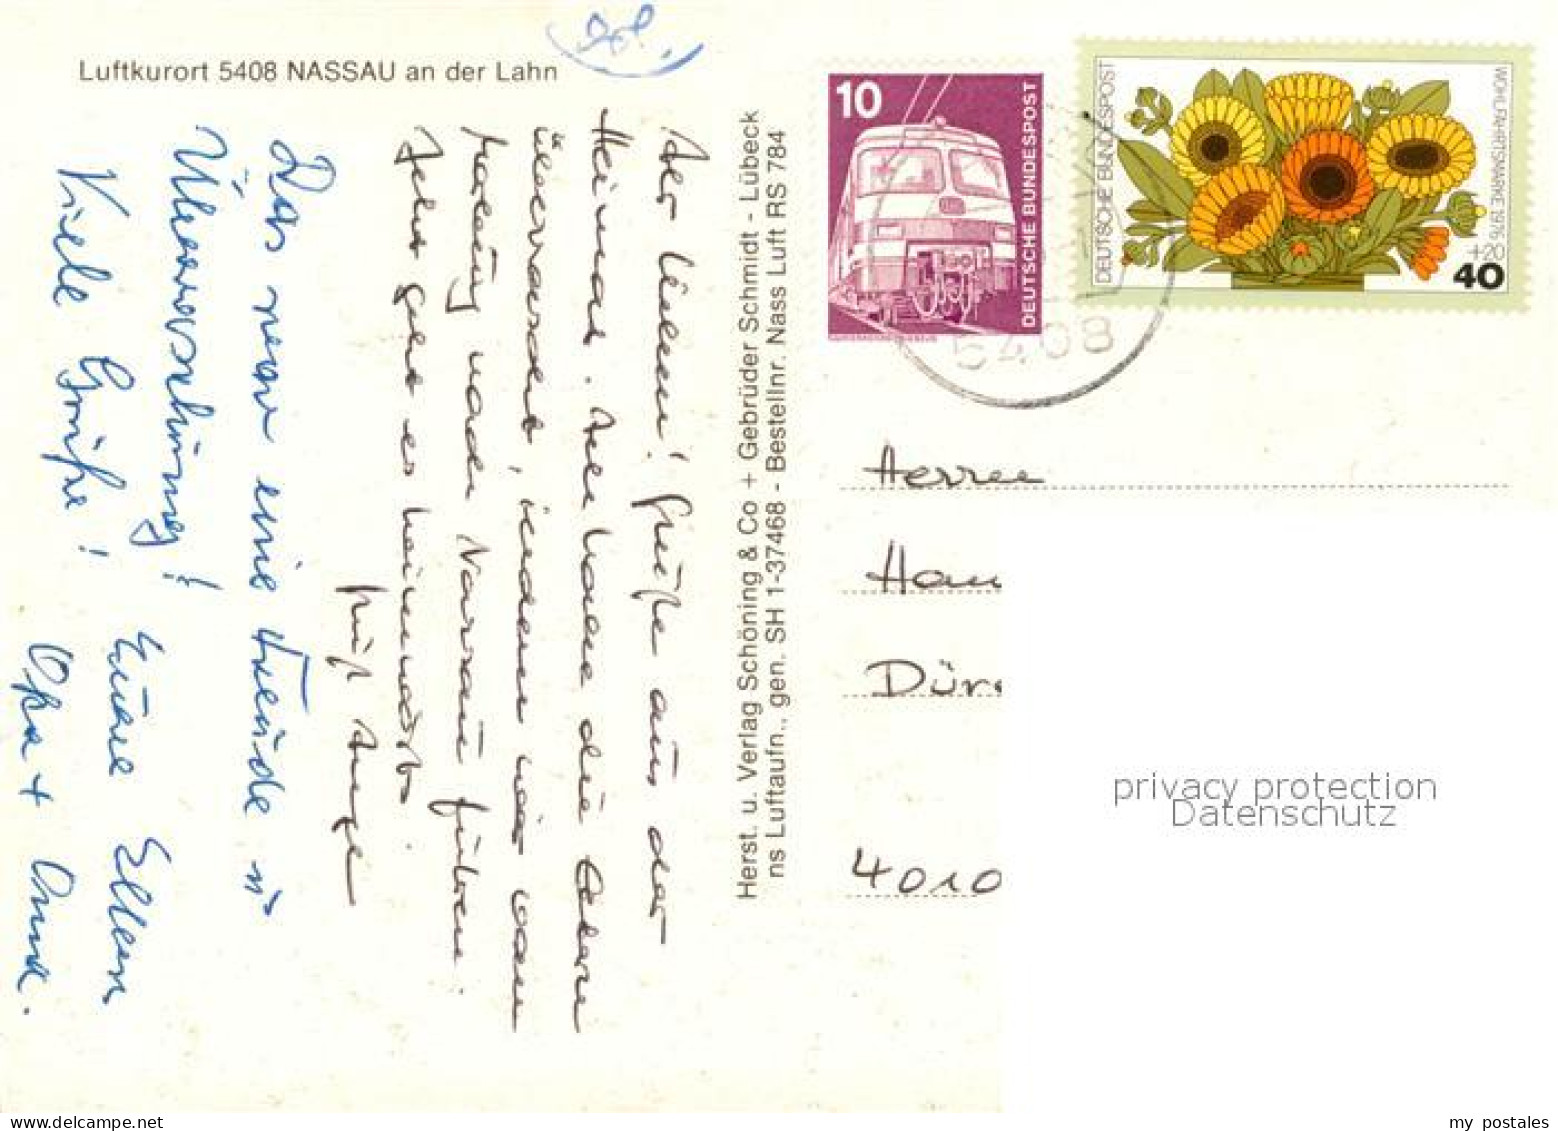 Luftkurort 5408 NASSAU an der Lahn
Ihr Lieben! Grüße aus der
Heimat. Ich habe die Eltern
überrascht, indem wir
nach Nassau führen.
Jetzt geht es heimwärts.
Gruß
Das war eine Freude u
Überraschung!
Viele Grüße!
Eure Eltern
Opa + Oma.
Herst. u. Verlag Schöning & Co + Gebrüder Schmidt - Lübeck
ns Luftaufn., gen. SH 1-37468 - Bestellnr. Nass Luft RS 784
10
DEUTSCHE BUNDESPOST
DEUTSCHE BUNDESPOST
WOHLFAHRTSMARKE 1976
+20
40
5408
Herren
Han
Dür
4010
privacy protection
Datenschutz
my postales